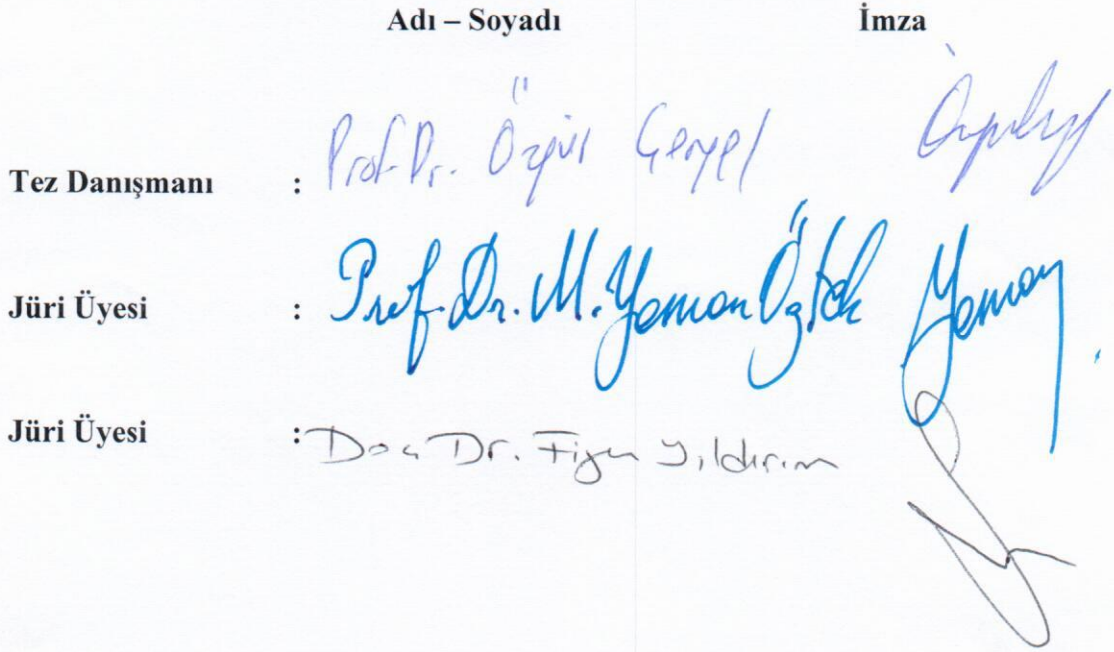 Adı – Soyadı İmza
Tez Danışmanı : Prof. Dr. Özgür Çengel
Jüri Üyesi : Prof. Dr. M. Yaman Öztek Yaman
Jüri Üyesi : Doç Dr. Figen Yıldırım